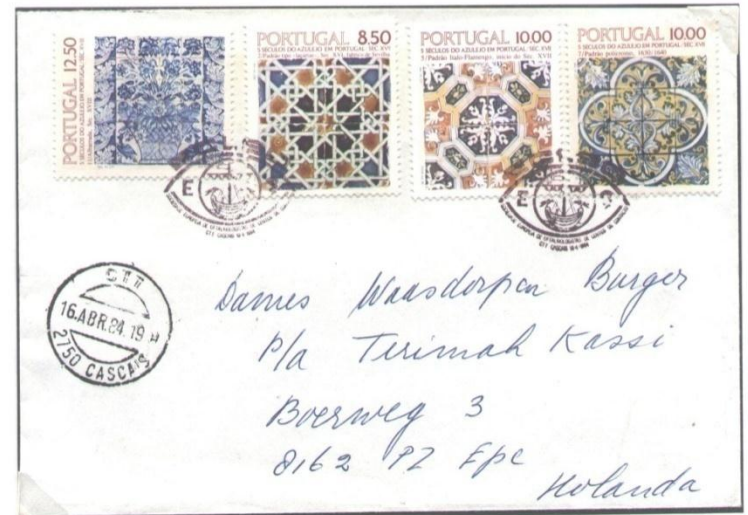 PORTUGAL 12.50
5 SÉCULOS DO AZULEJO EM PORTUGAL/SÉC. XVII
PORTUGAL 8.50
5 SÉCULOS DO AZULEJO EM PORTUGAL/SÉC. XVI
PORTUGAL 10.00
5 SÉCULOS DO AZULEJO EM PORTUGAL/SÉC. XVII
5/Padrão Italo-Flamengo, início do Séc. XVII
PORTUGAL 10.00
5 SÉCULOS DO AZULEJO EM PORTUGAL/SÉC. XVII
7/Padrão polícromo, 1630/1640
CTT
16.ABR.84.19
2750 CASCAIS
Dames Waasdorpen Burger
P/a Terimah Kassi
Boerweg 3
8162 PZ Epe
Holanda